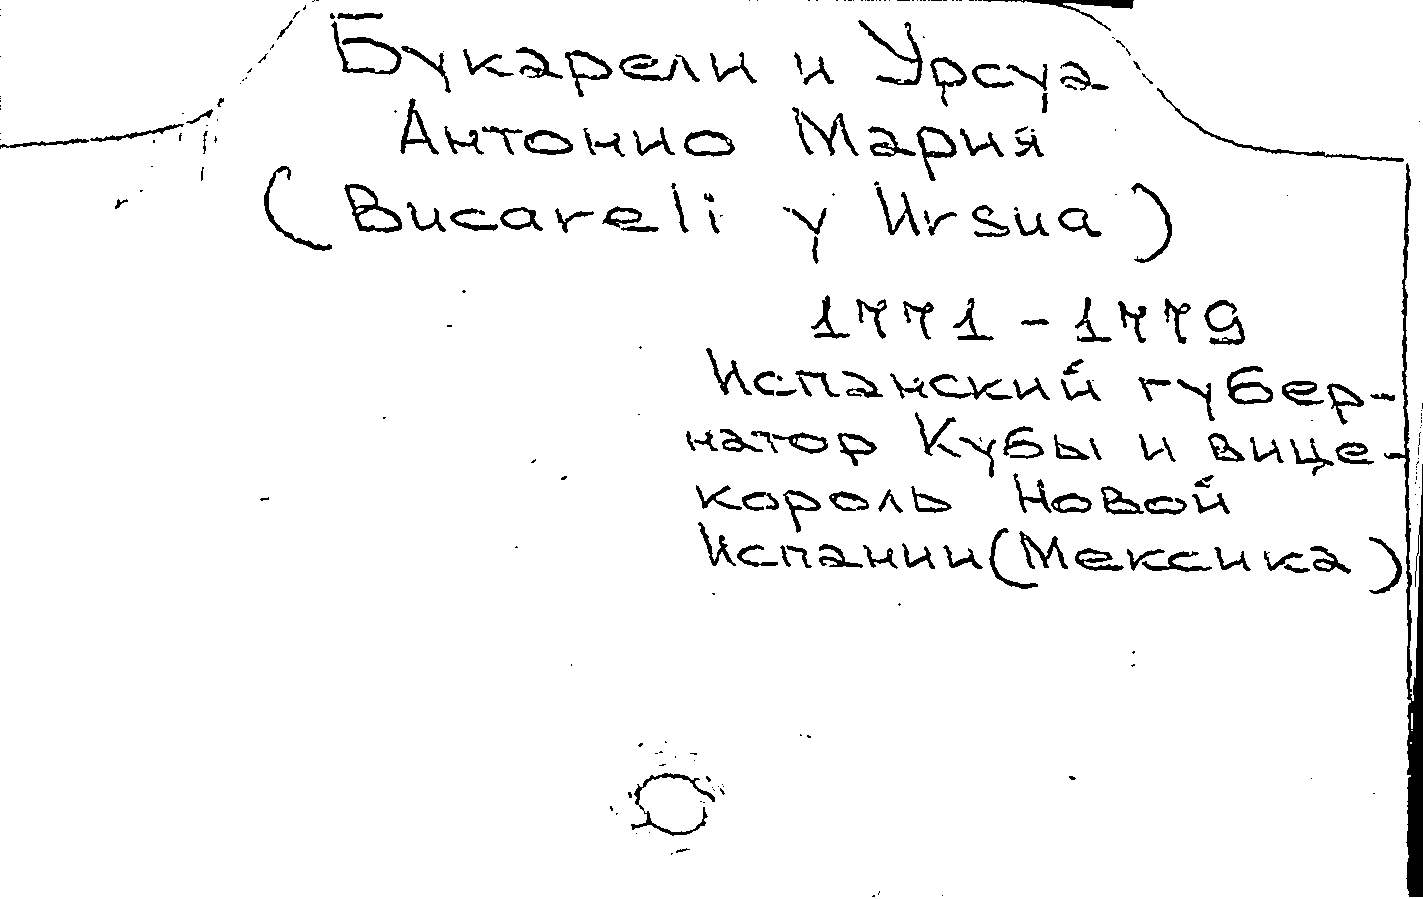 Букарели и Урсуа
Антонио Мария
(Bucareli y Ursua)
1771-1779
Испанский губер-
натор Кубы и вице-
король Новой
Испании(Мексика)